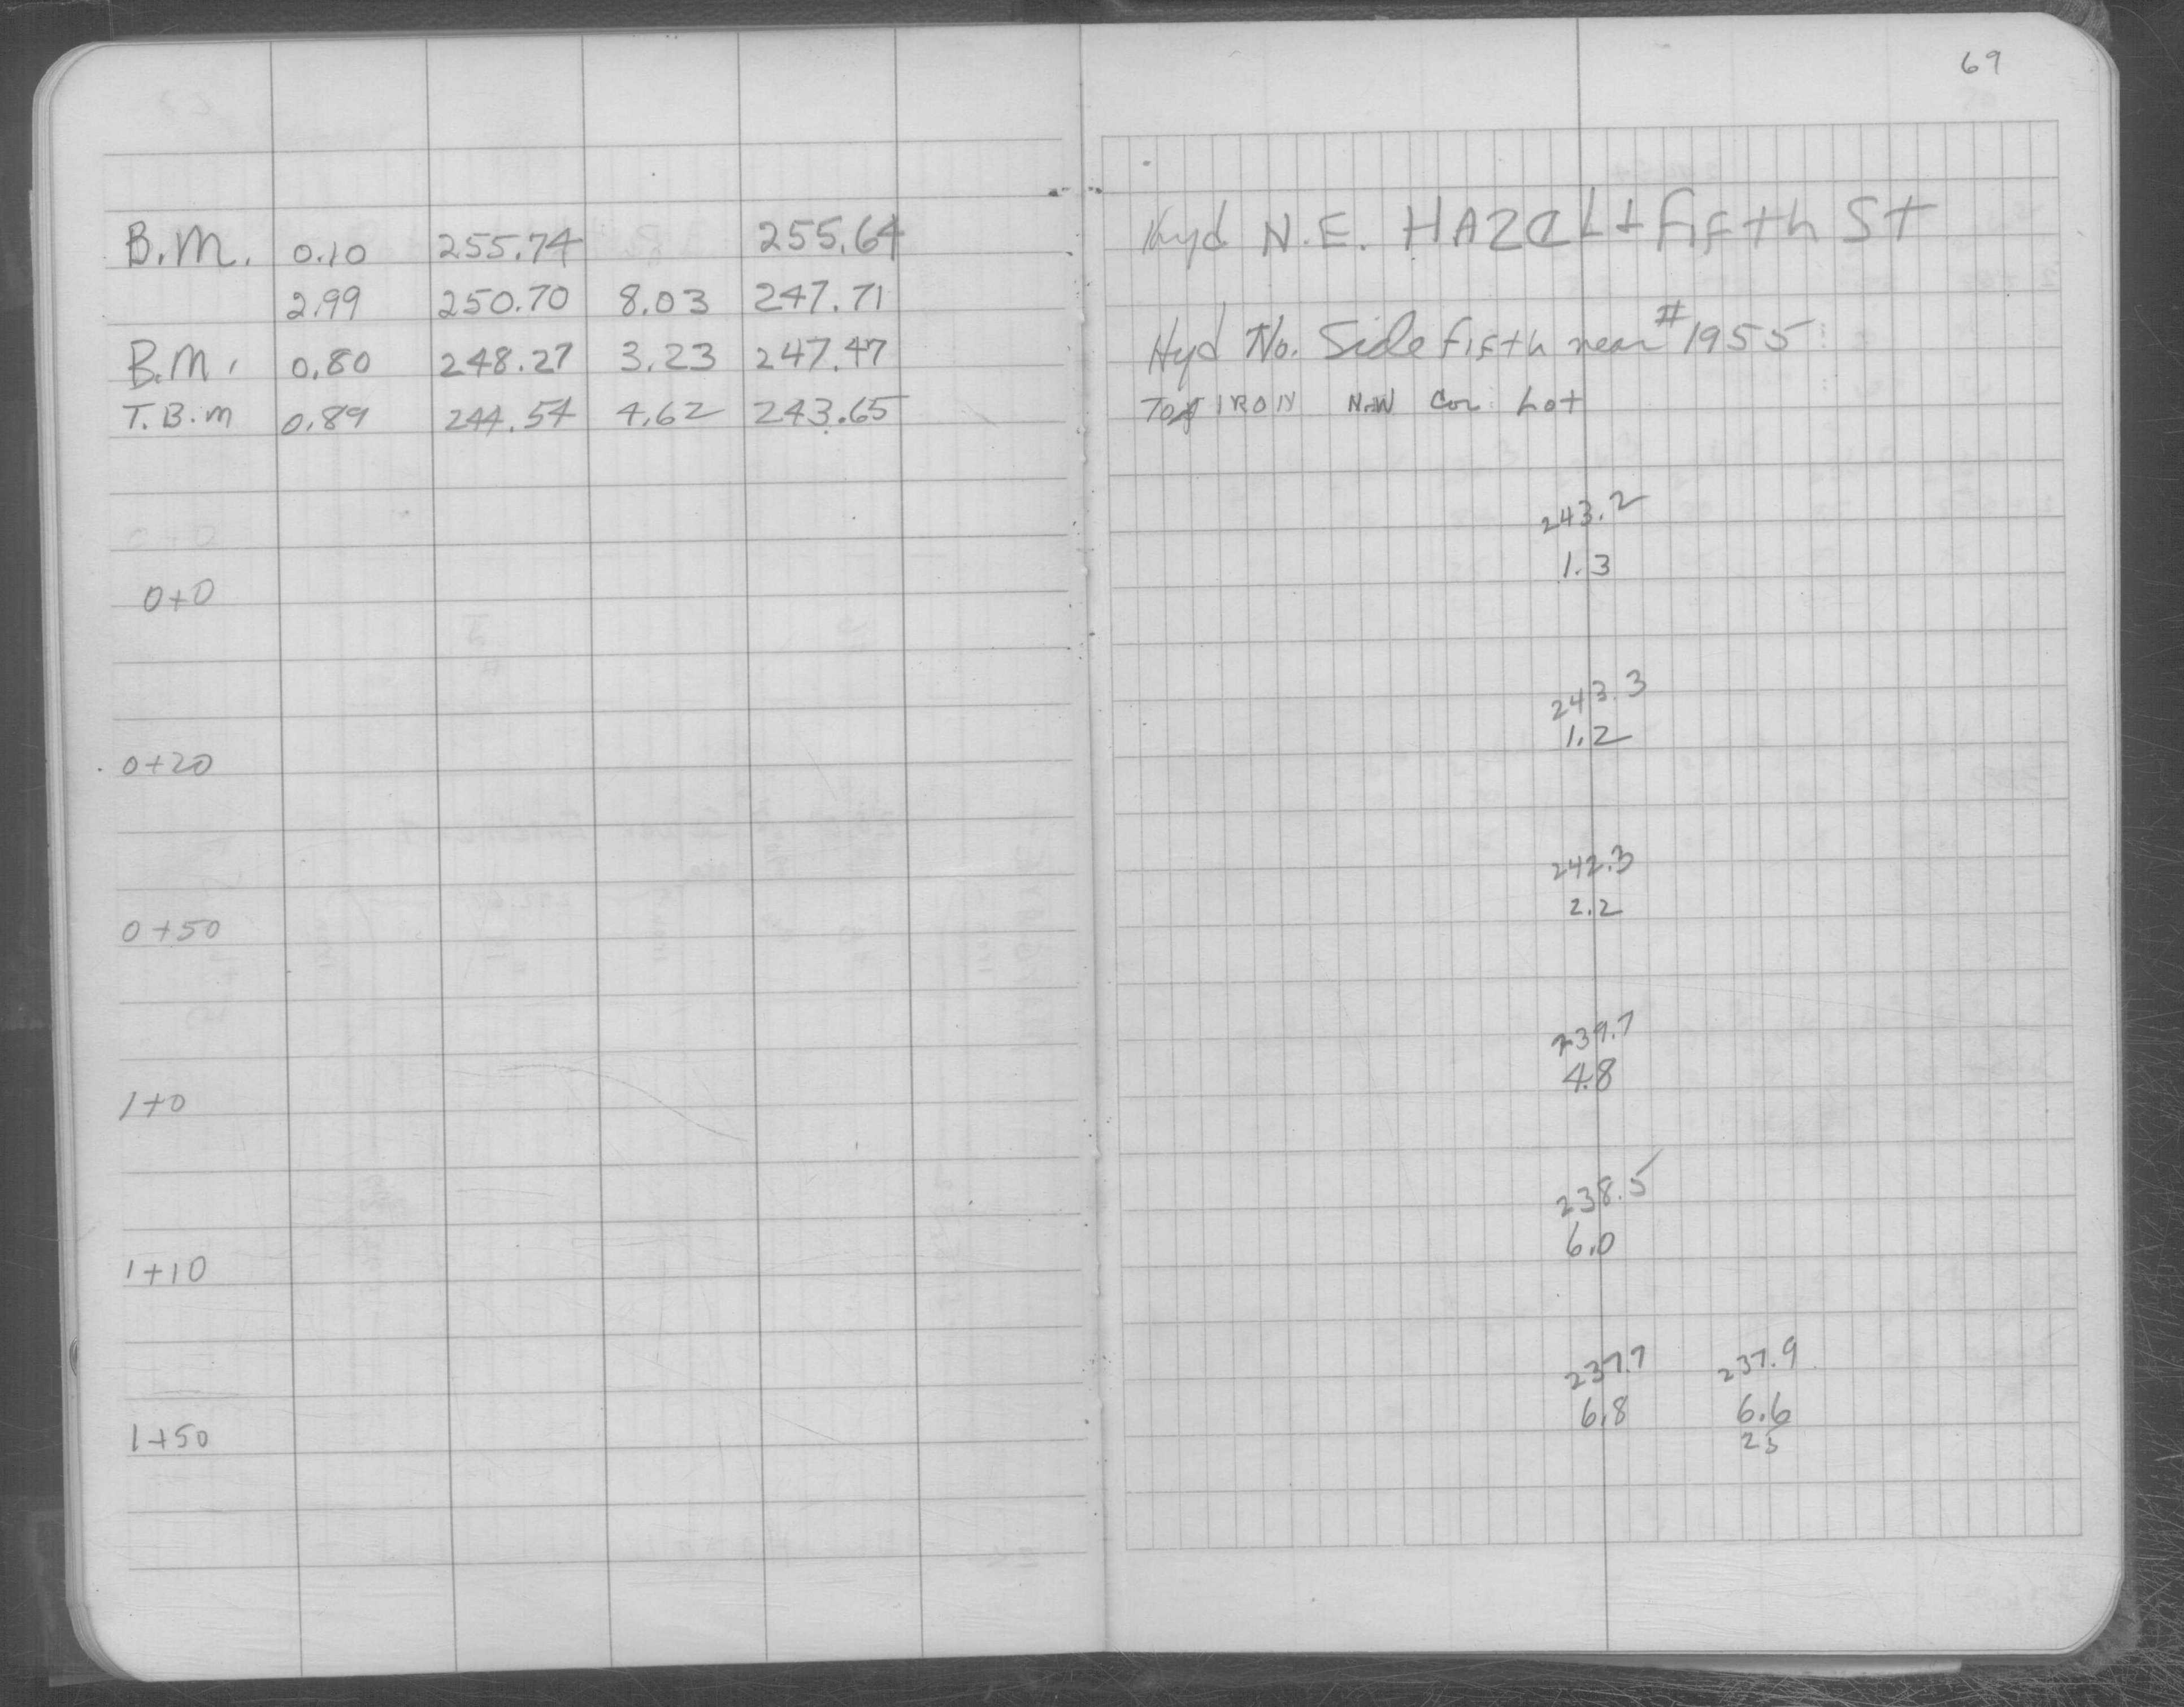 69
B.M. 0.10 255.74 255.64 Hyd N.E. HAZEL + Fifth St
2.99 250.70 8.03 247.71
B.M. 0.80 248.27 3.23 247.47 Hyd No. Side fifth near #1955
T.B.M 0.89 244.54 4.62 243.65 Top IRON N.W Cor Lot
243.2
1.3
0+0
243.3
1.2
0+20
242.3
2.2
0+50
239.7
4.8
1+0
238.5
6.0
1+10
237.7 237.9
6.8 6.6
1+50 25